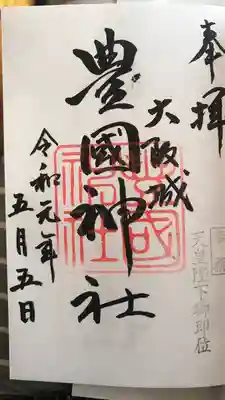 奉拝
大阪城
豊國神社
令和元年
五月五日
天皇陛下御即位